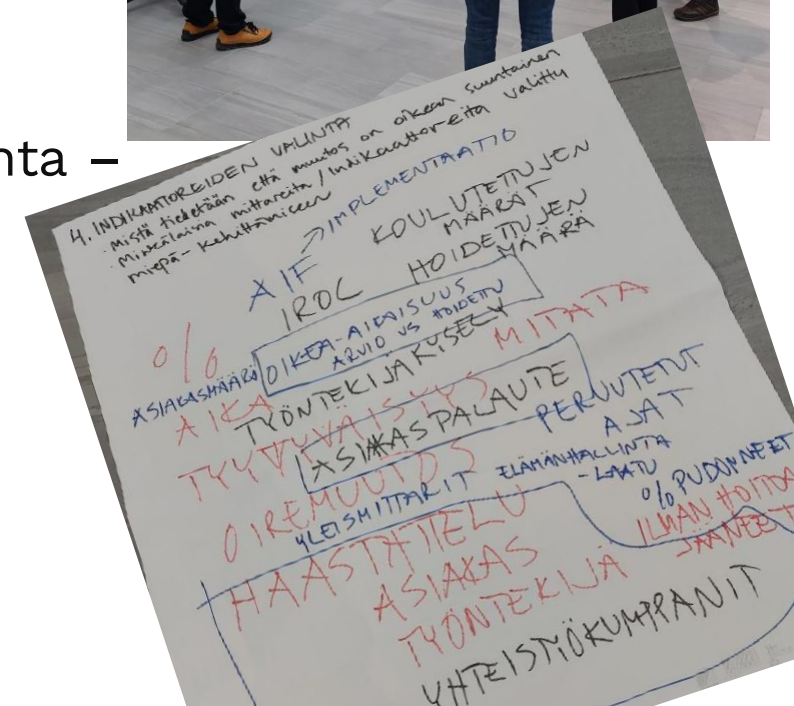 nta –
4. INDIKAATOREIDEN VALINTA
- Mistä tiedetään että muutos on oikean suuntainen
- Minkälaina mittareita / indikaattoreita valittu
miepä-kehittämiseen
AIF → IMPLEMENTAATIO
IROC
KOULUTETTUJEN
MÄÄRÄT
HOIDETTUJEN
MÄÄRÄ
%
ASIAKASMÄÄRÄ
OIKEA-AIKAISUUS
ARVIO VS HOIDETTU
AIKA
TYÖNTEKIJÄKYSELY
MITATA
TYYTYVÄISYYS
ASIAKASPALAUTE
PERUUTETUT
AJAT
OIREMUUTOS
YLEISMITTARIT
ELÄMÄNHALLINTA
- LAATU
% PUDONNEET
ILMAN HOITOA
JÄÄNEET
HAASTATTELU
ASIAKAS
TYÖNTEKIJÄ
YHTEISTYÖKUMPPANIT